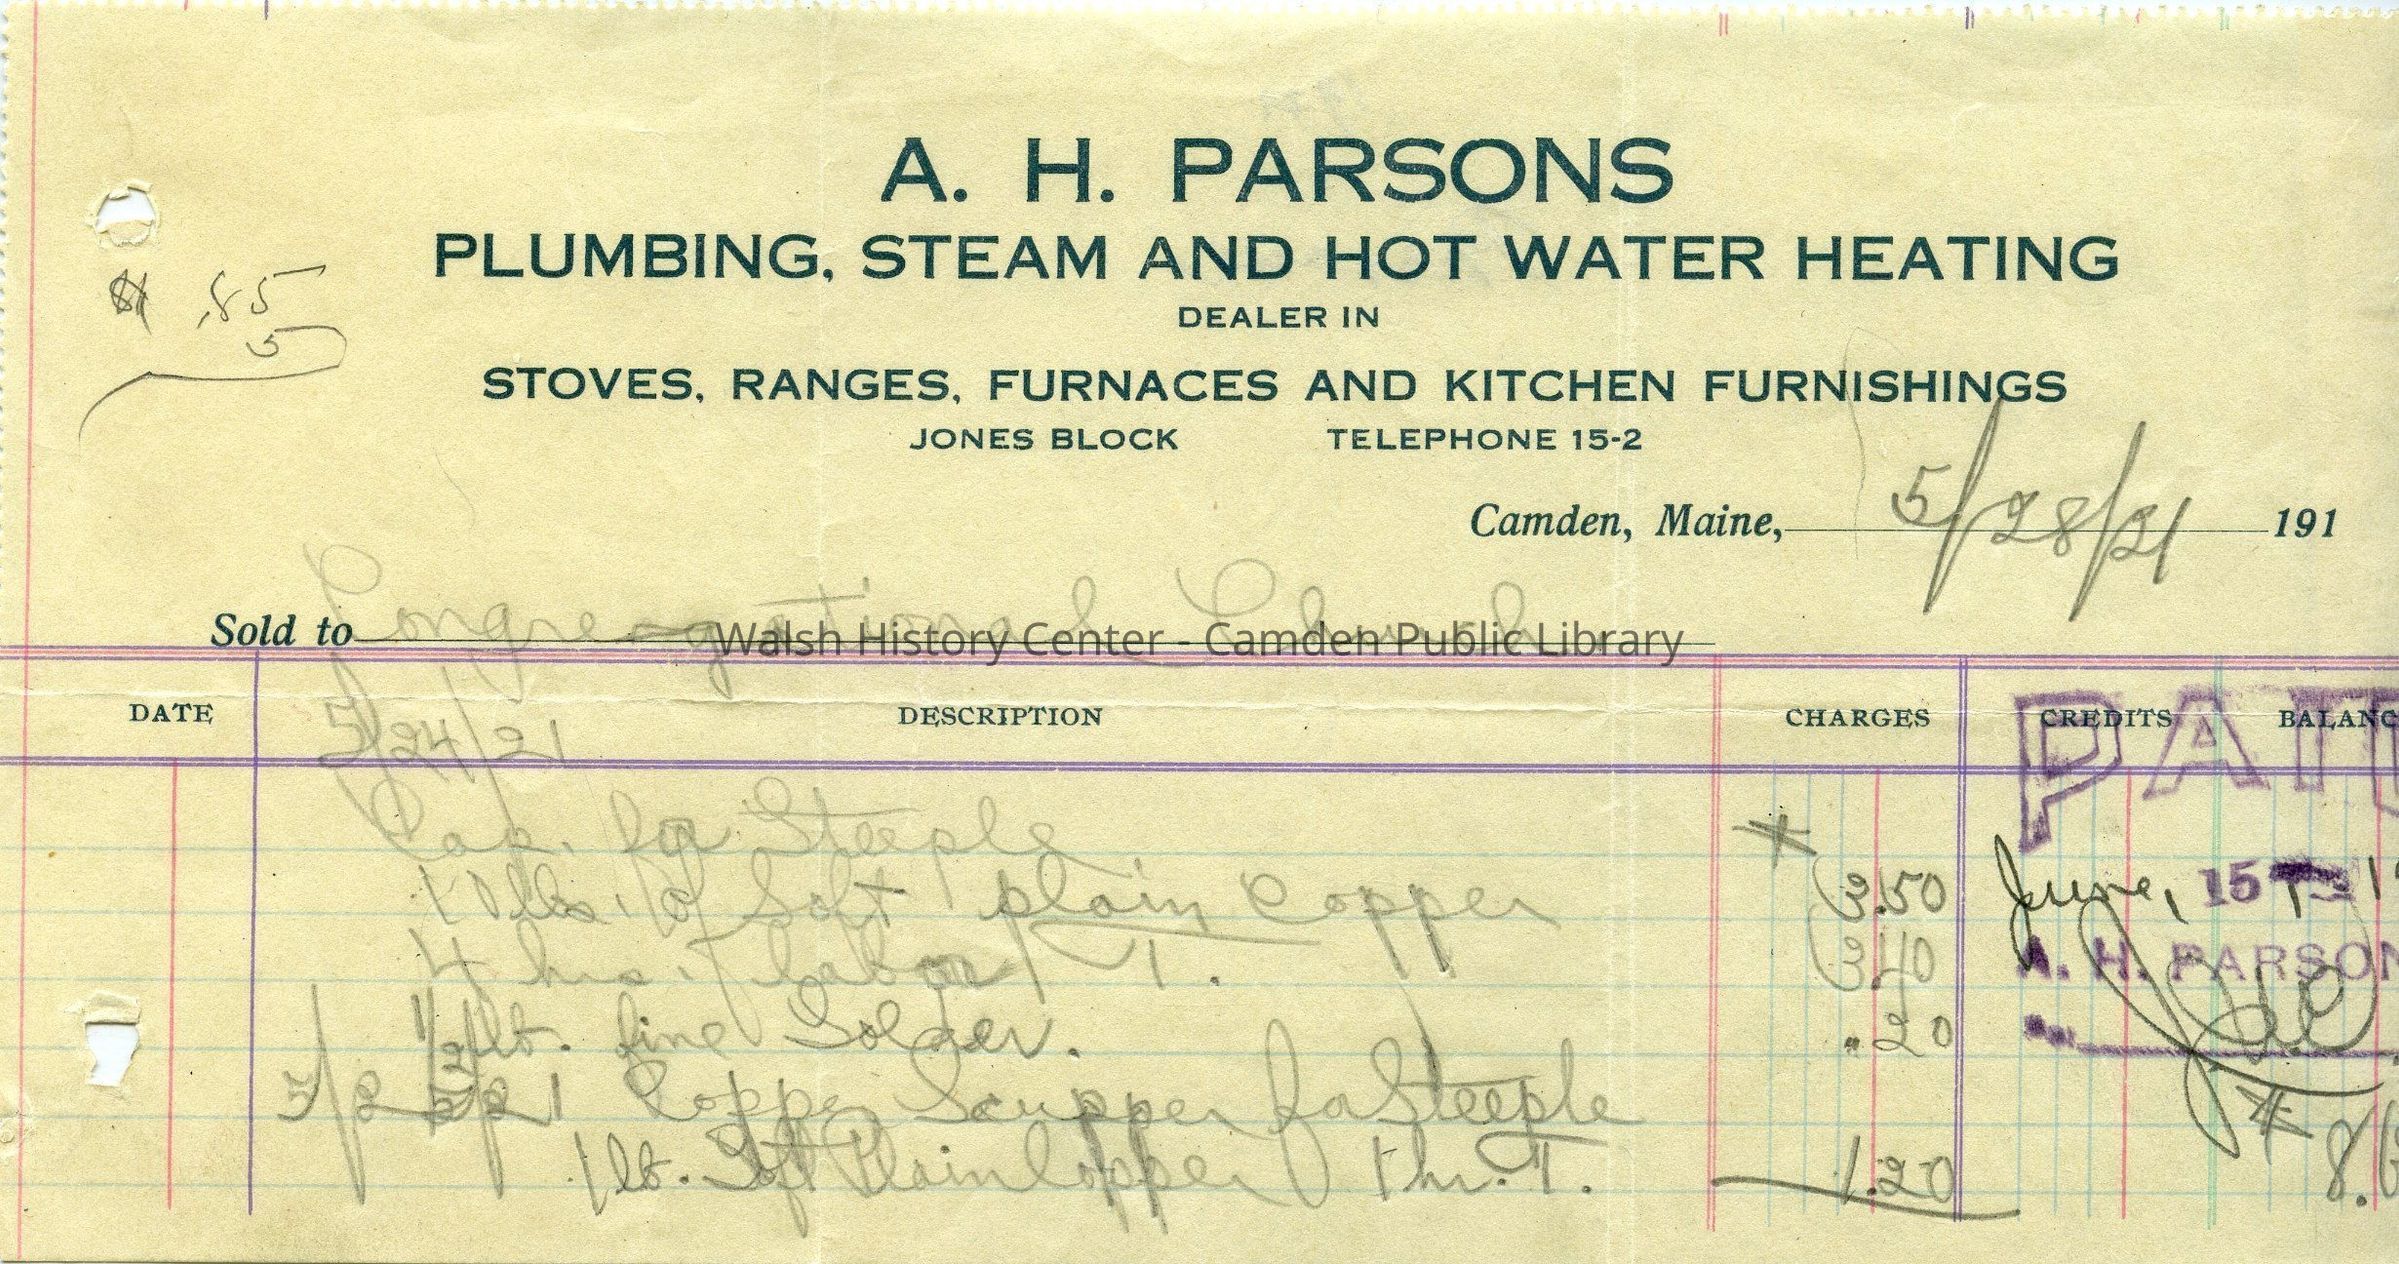 A. H. PARSONS
PLUMBING, STEAM AND HOT WATER HEATING
DEALER IN
STOVES, RANGES, FURNACES AND KITCHEN FURNISHINGS
JONES BLOCK TELEPHONE 15-2
.85
5
Camden, Maine, 5/28/21 191
Sold to Congregational Church
Walsh History Center - Camden Public Library
DATE DESCRIPTION CHARGES CREDITS BALANC
5/24/21
PAI
Cap. for Steeple
10 lbs. of Soft plain Copper 3.50 June, 15
4 hrs. labor T. 3.40 A. H. PARSON
1/2 lb. fine Solder. .20
Copper Scupper for Steeple
1 lb. Soft Plain Copper 1 hr. T. 1.20 8.